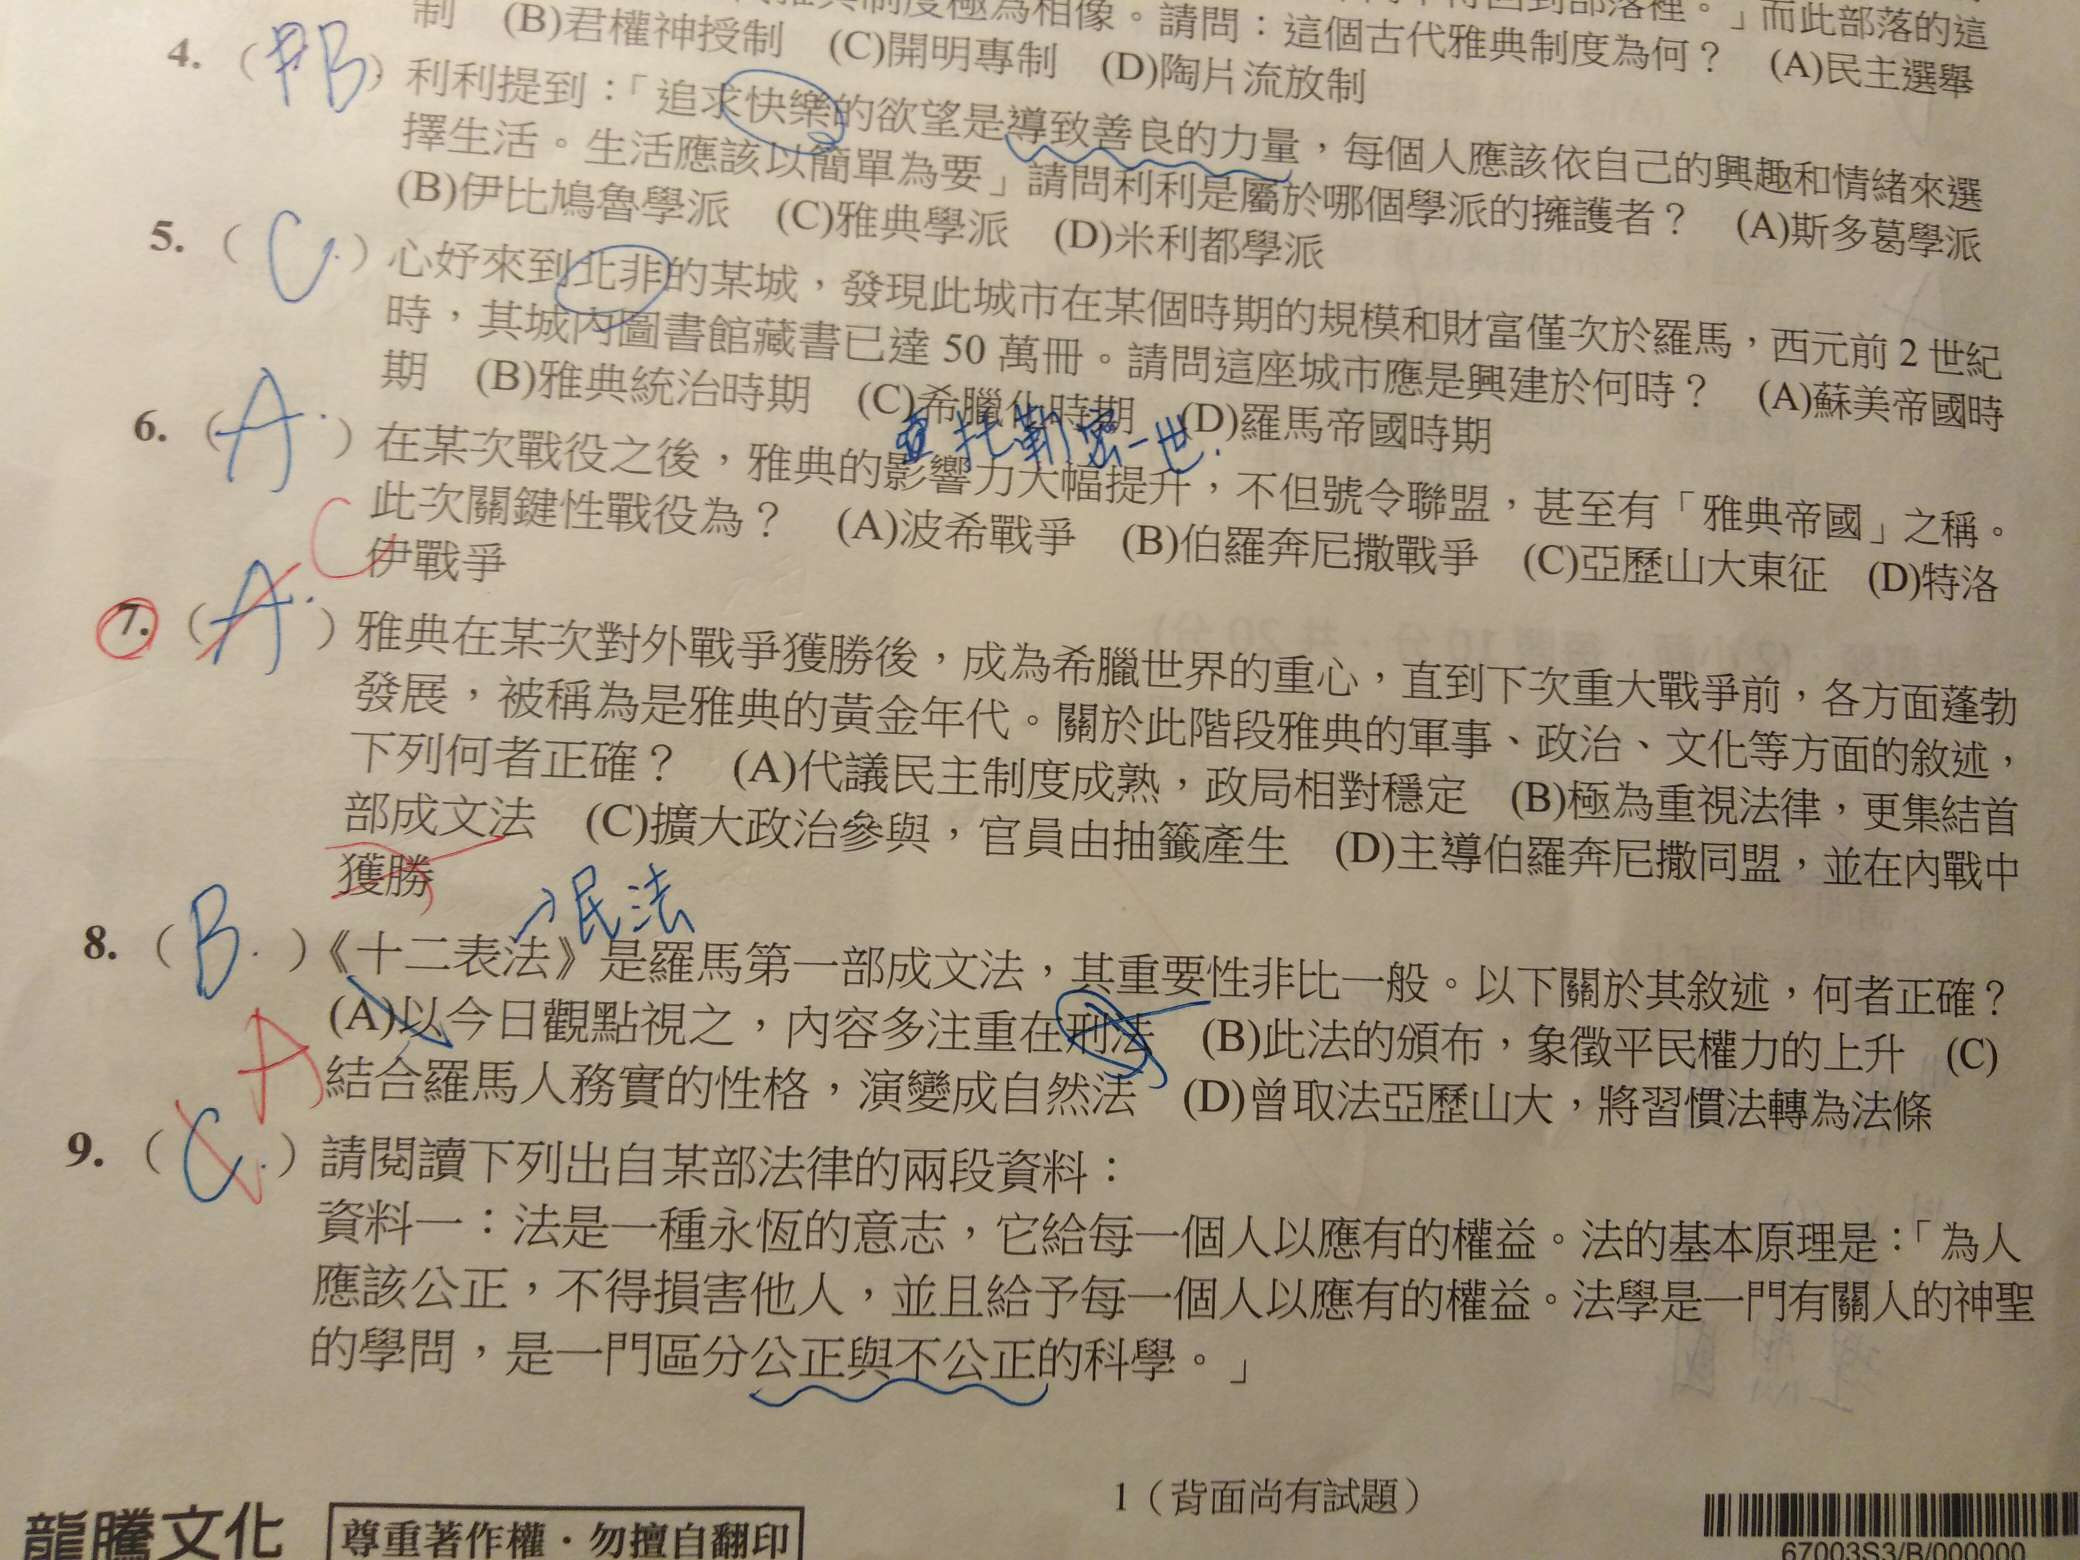 制 (B)君權神授制 (C)開明專制 (D)陶片流放制
制度極為相像。請問：這個古代雅典制度為何？ (A)民主選舉
回到部落裡。」而此部落的這
4. ( B ) 利利提到：「追求快樂的欲望是導致善良的力量，每個人應該依自己的興趣和情緒來選
擇生活。生活應該以簡單為要」請問利利是屬於哪個學派的擁護者？ (A)斯多葛學派
(B)伊比鳩魯學派 (C)雅典學派 (D)米利都學派
5. ( C. ) 心妤來到北非的某城，發現此城市在某個時期的規模和財富僅次於羅馬，西元前 2 世紀
時，其城內圖書館藏書已達 50 萬冊。請問這座城市應是興建於何時？ (A)蘇美帝國時
期 (B)雅典統治時期 (C)希臘化時期 (D)羅馬帝國時期
托勒密一世.
6. ( A. ) 在某次戰役之後，雅典的影響力大幅提升，不但號令聯盟，甚至有「雅典帝國」之稱。
此次關鍵性戰役為？ (A)波希戰爭 (B)伯羅奔尼撒戰爭 (C)亞歷山大東征 (D)特洛
伊戰爭
C
7. ( A. ) 雅典在某次對外戰爭獲勝後，成為希臘世界的重心，直到下次重大戰爭前，各方面蓬勃
發展，被稱為是雅典的黃金年代。關於此階段雅典的軍事、政治、文化等方面的敘述，
下列何者正確？ (A)代議民主制度成熟，政局相對穩定 (B)極為重視法律，更集結首
部成文法 (C)擴大政治參與，官員由抽籤產生 (D)主導伯羅奔尼撒同盟，並在內戰中
獲勝
→民法
8. ( B. )《十二表法》是羅馬第一部成文法，其重要性非比一般。以下關於其敘述，何者正確？
(A)以今日觀點視之，內容多注重在刑法 (B)此法的頒布，象徵平民權力的上升 (C)
結合羅馬人務實的性格，演變成自然法 (D)曾取法亞歷山大，將習慣法轉為法條
A
9. ( C. ) 請閱讀下列出自某部法律的兩段資料：
資料一：法是一種永恆的意志，它給每一個人以應有的權益。法的基本原理是：「為人
應該公正，不得損害他人，並且給予每一個人以應有的權益。法學是一門有關人的神聖
的學問，是一門區分公正與不公正的科學。」
1（背面尚有試題）
龍騰文化 尊重著作權·勿擅自翻印
67003S3/B/000000